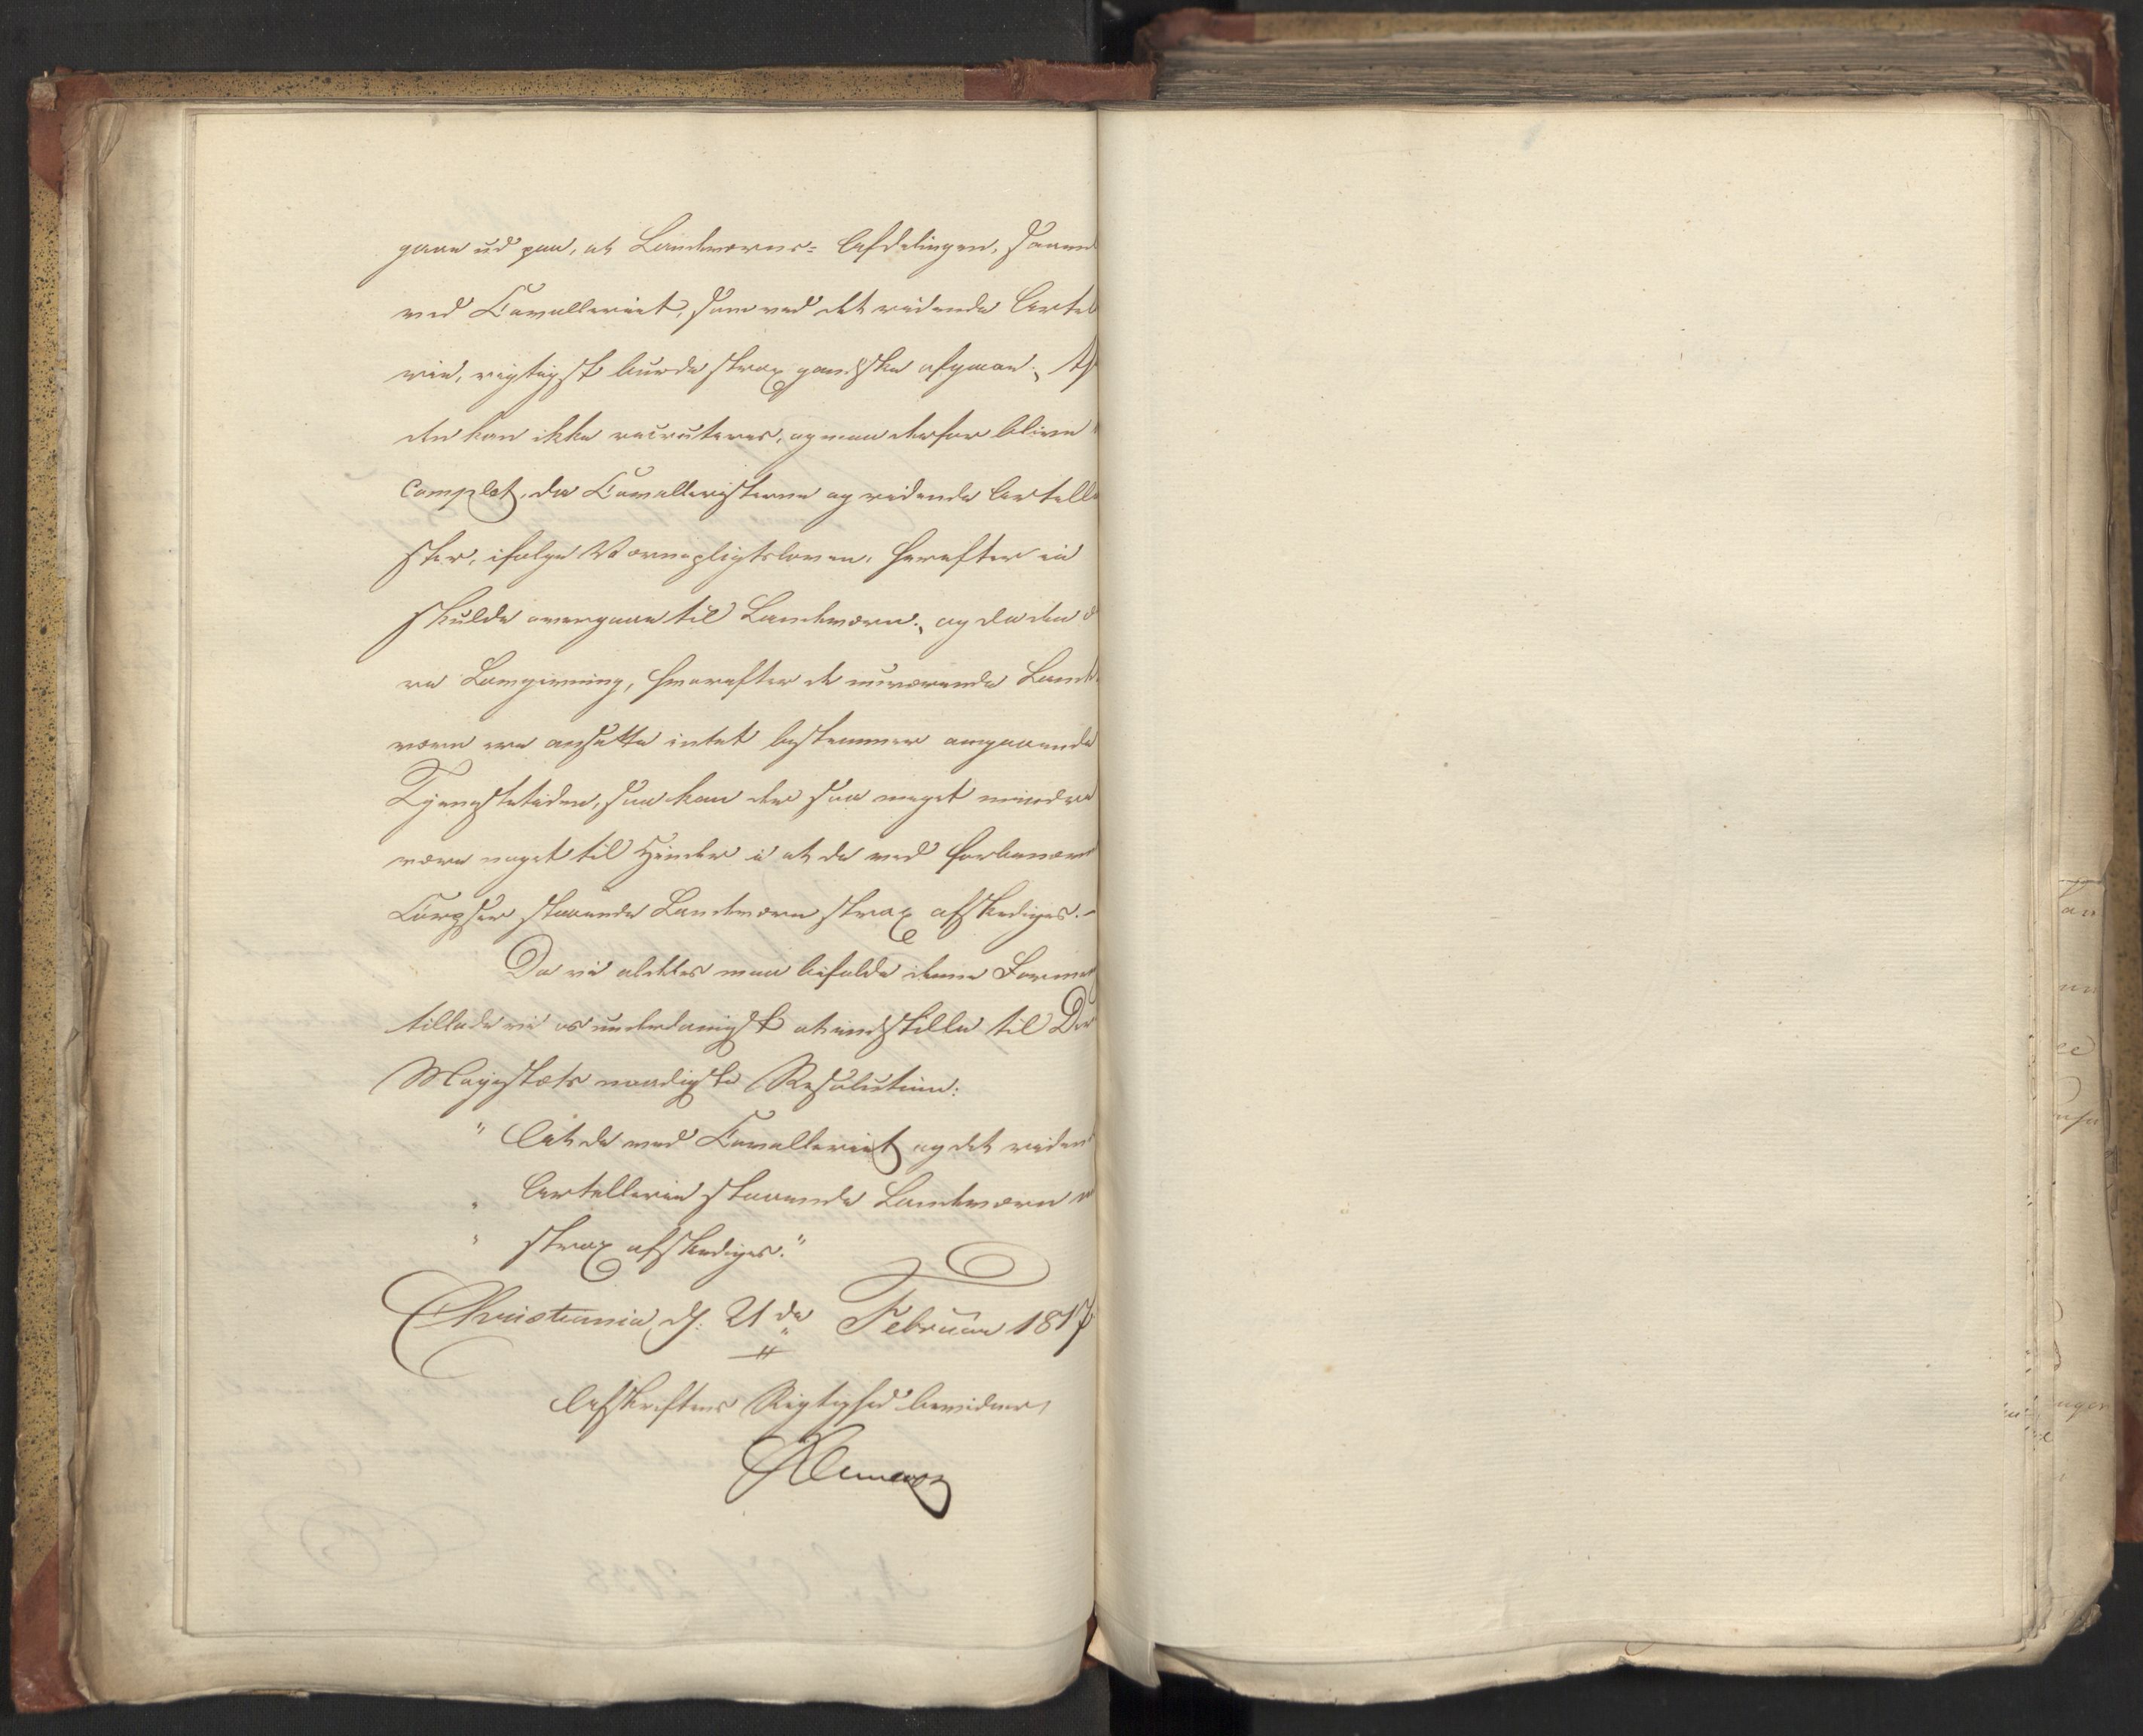 gaae ud paa, at Landværns- Afdelingen, saavel
ved Cavalleriet, som ved det ridende Artel
rie, rigtigst burde strax ganske afgaae;
den kan ikke recruteres, og maa derfor blive
complet, da Cavalleristerne og ridende Artelle
ster, ifølge Værnepligtsloven, herefter ei
skulde overgaae til Landværn; og da den
re Lovgivning, hvorefter de nuværende Land
værn ere ansatte intet bestemmer angaaende
Tjenestetiden, saa kan der saa meget mindre
være noget til Hinder i at de ved forbenævn
Corpser staaende Landværn strax afskediges.-
Da vi aldeles maa bifalde denne Formen
tillade vi os underdanigst at indstille til De
Majestæts naadigste Resolution:
" At de ved Cavalleriet og det riden
" Artellerie staaende Landværn
" strax afskediges."
Christiania d: 21de Februar 1817
Afskriftens Rigtighed bevidner,